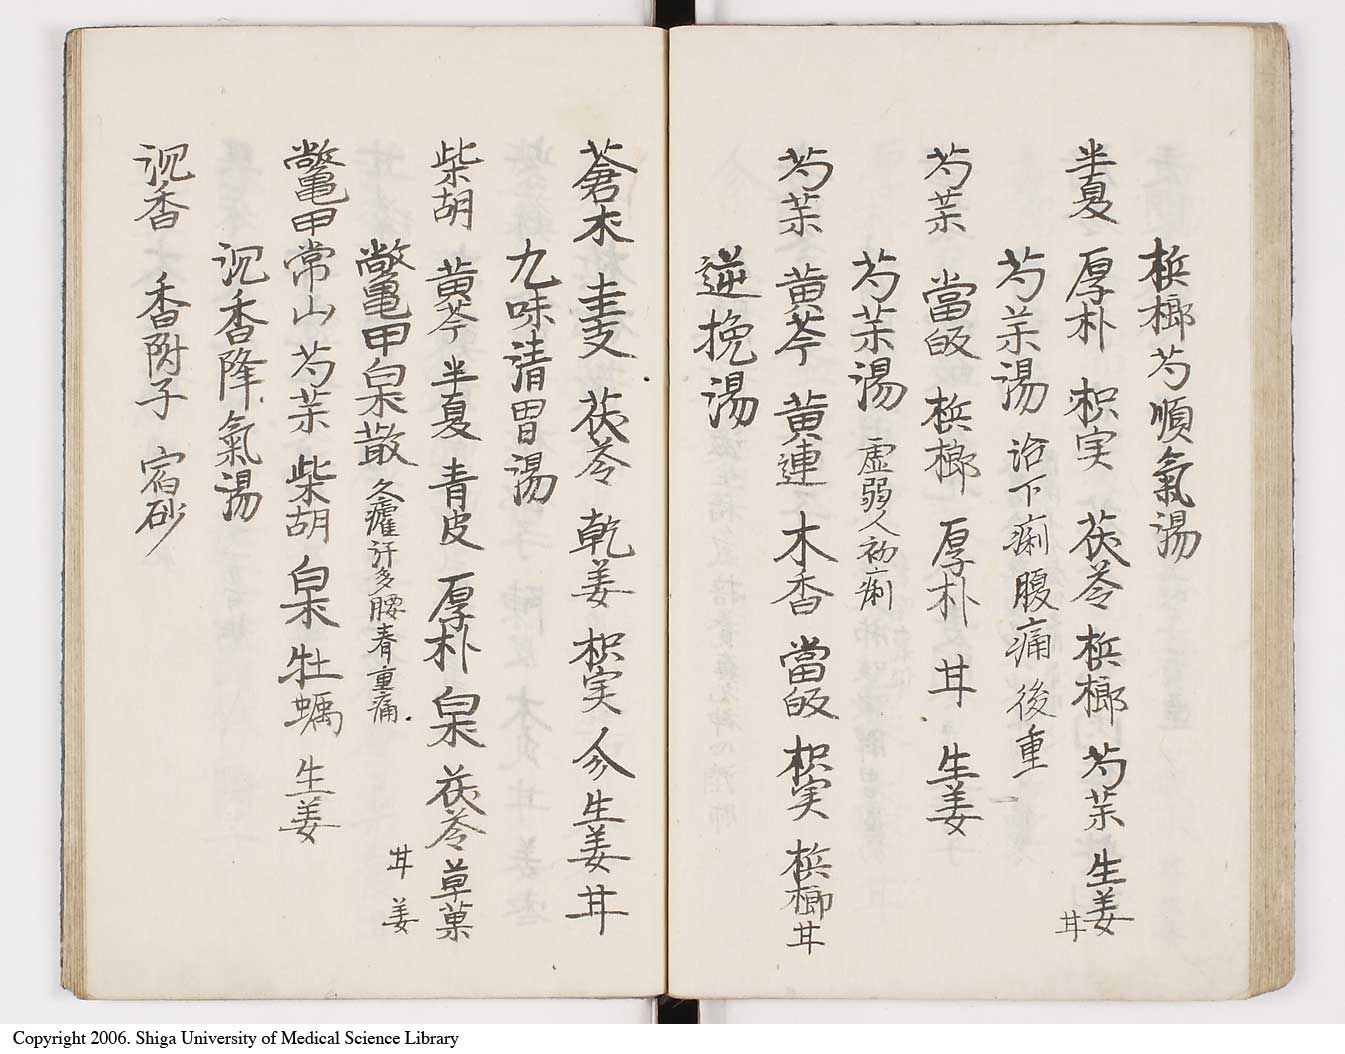 梹榔芍順氣湯
半夏 厚朴 枳实 茯苓 梹榔 芍茱 生姜 甘
芍茱湯 治下痢腹痛後重
芍茱 當皈 梹榔 厚朴 甘 生姜
芍茱湯 虚弱人初痢
芍茱 黄芩 黄連 木香 當皈 枳実 梹榔 甘
逆挽湯
蒼朮 圭支 茯苓 乾姜 枳実 人参 生姜 甘
九味清胃湯
柴胡 黄芩 半夏 青皮 厚朴 白朮 茯苓 草菓 甘 姜
鼈甲白朮散 久瘧汗多腰脊重痛
鼈甲 常山 芍茱 柴胡 白朮 牡蠣 生姜
沉香降氣湯
沉香 香附子 宿砂
Copyright 2006. Shiga University of Medical Science Library